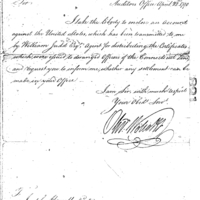 Auditors Office April 30th 1792
Sir
I take the liberty to enclose an account
against the United States, which has been transmitted to me
by William Judd Esqr. Agent for distributing the Certificates
which were issued to deranged Officers of the Connecticut Line
and request you to inform me, whether any settlement can be
made in your Office.
I am Sir with much respect
Your Obed. Serv
Oliv. Wolcott Jr